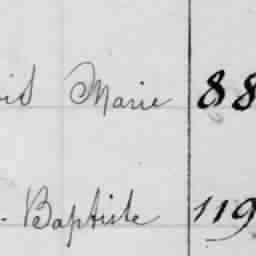 Marie 88
Baptiste 119